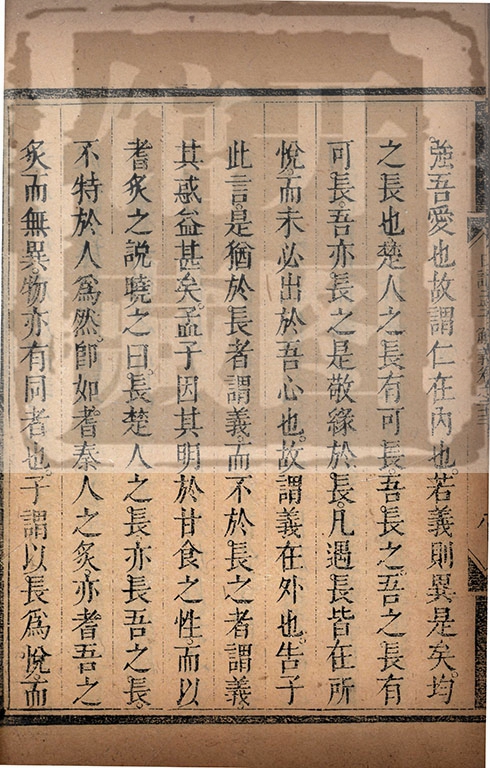 強吾愛也故謂仁在內也若義則異是矣均
之長也楚人之長有可長吾長之吾之長有
可長吾亦長之是敬緣於長凡遇長皆在所
悅而未必出於吾心也故謂義在外也告子
此言是猶於長者謂義而不於長之者謂義
其惑益甚矣孟子因其明於甘食之性而以
耆炙之說曉之曰長楚人之長亦長吾之長
不特於人爲然卽如耆秦人之炙亦耆吾之
炙而無異物亦有同者也子謂以長爲悅而